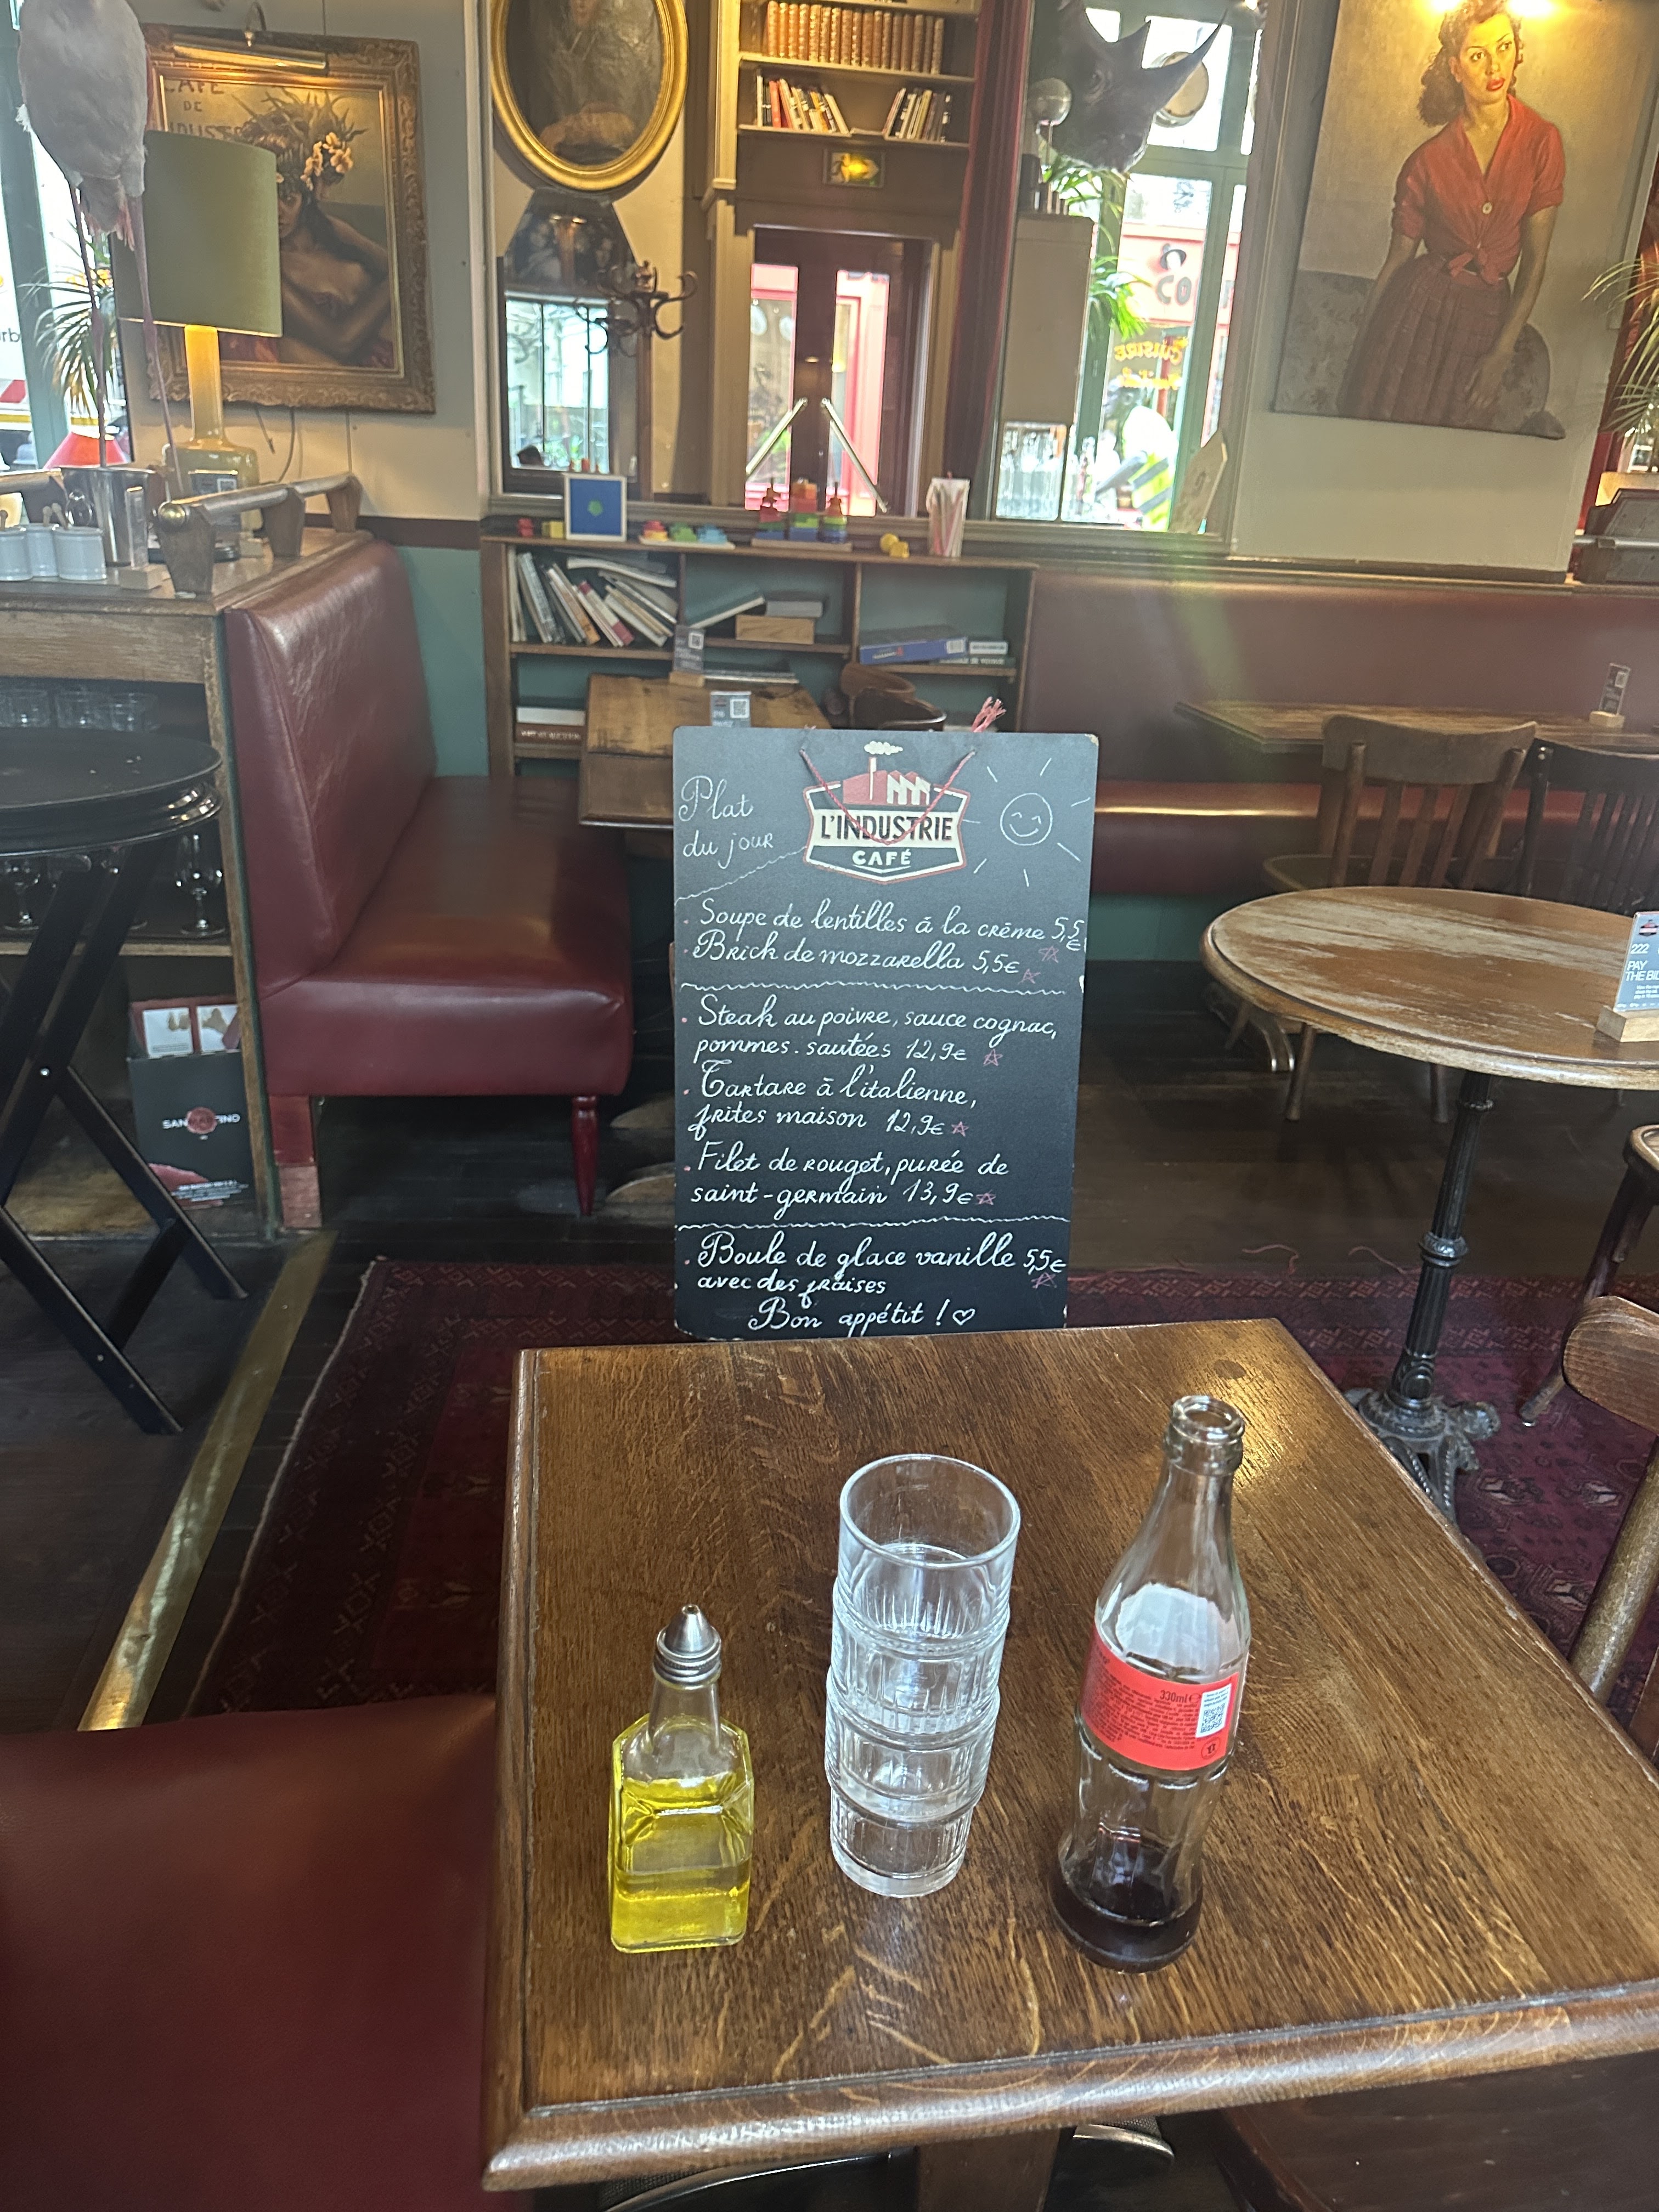 CAFE
DE
Plat
du jour
L'INDUSTRIE
CAFÉ
. Soupe de lentilles à la crème 5,5
€
. Brick de mozzarella 5,5€
. Steak au poivre, sauce cognac,
pommes. sautées 12,9€
. Tartare à l'italienne,
frites maison 12,9€
. Filet de rouget, purée de
saint-germain 13,9€
. Boule de glace vanille 5,5€
avec des fraises
Bon appétit !
222
PAY
THE BIL
330ml e